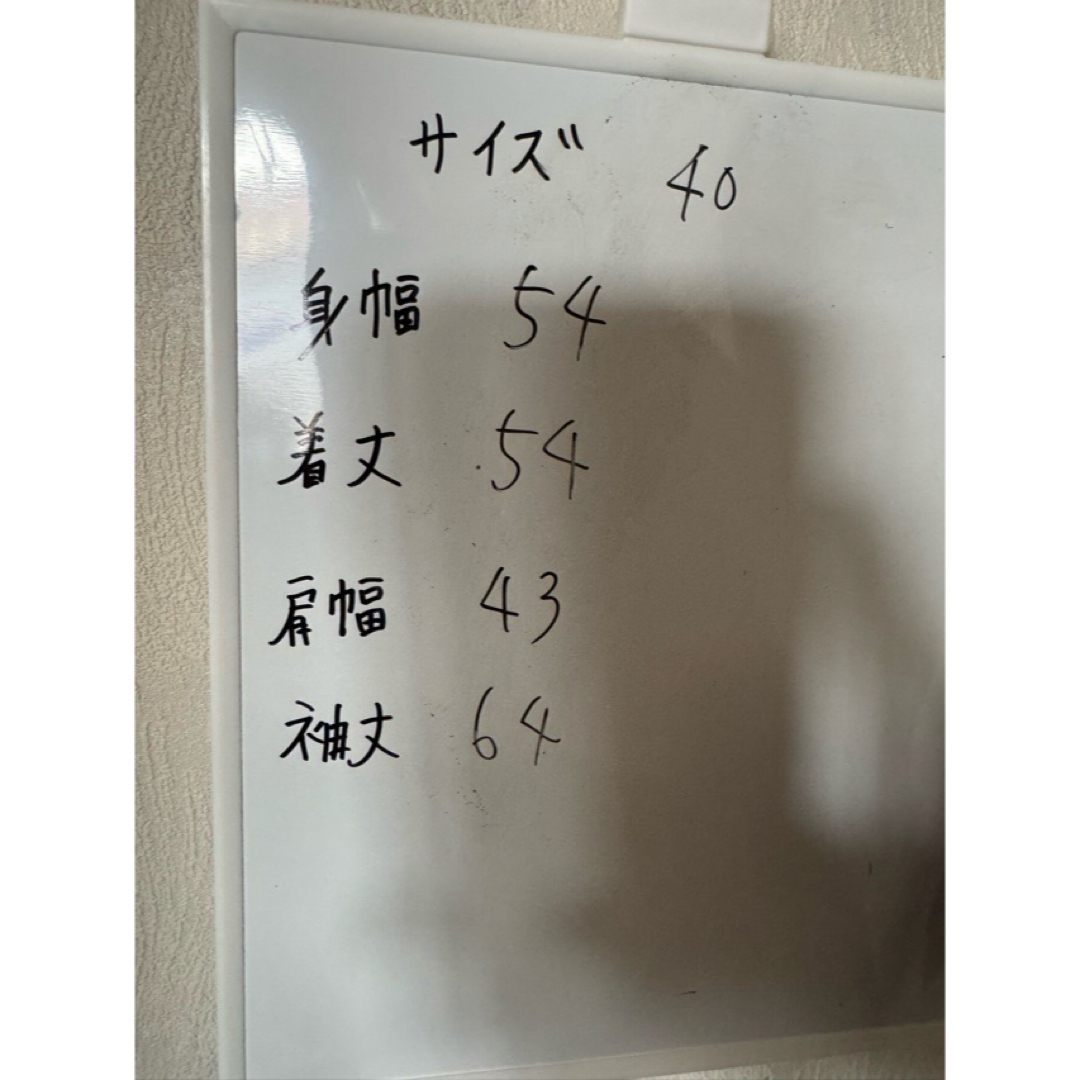 サイズ 40
身幅 54
着丈 54
肩幅 43
袖丈 64